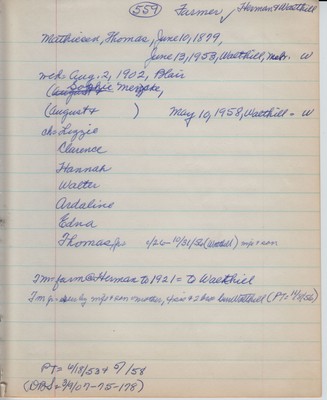 559 Farmer ✓ Herman & Walthill
Matthiesen, Thomas, June 10, 1879,
June 13, 1953, Walthill, Nebr. W
wed: Aug. 2, 1902, Blair
Sophie Mengke,
(August & ) May 10, 1958, Walthill = W
ch: Lizzie
Clarence
Hannah
Walter
Ardaline
Edna
Thomas Jr. 10/31/56 (Walthill) wife & son
Tm farm @ Herman to 1921 = to Walthill
Tm Jr. by wife & son & mother, 4 sis & 2 bros (PT=
PT= 6/18/53 & 5/ /58
(OBS & 3/9/07-75-178)